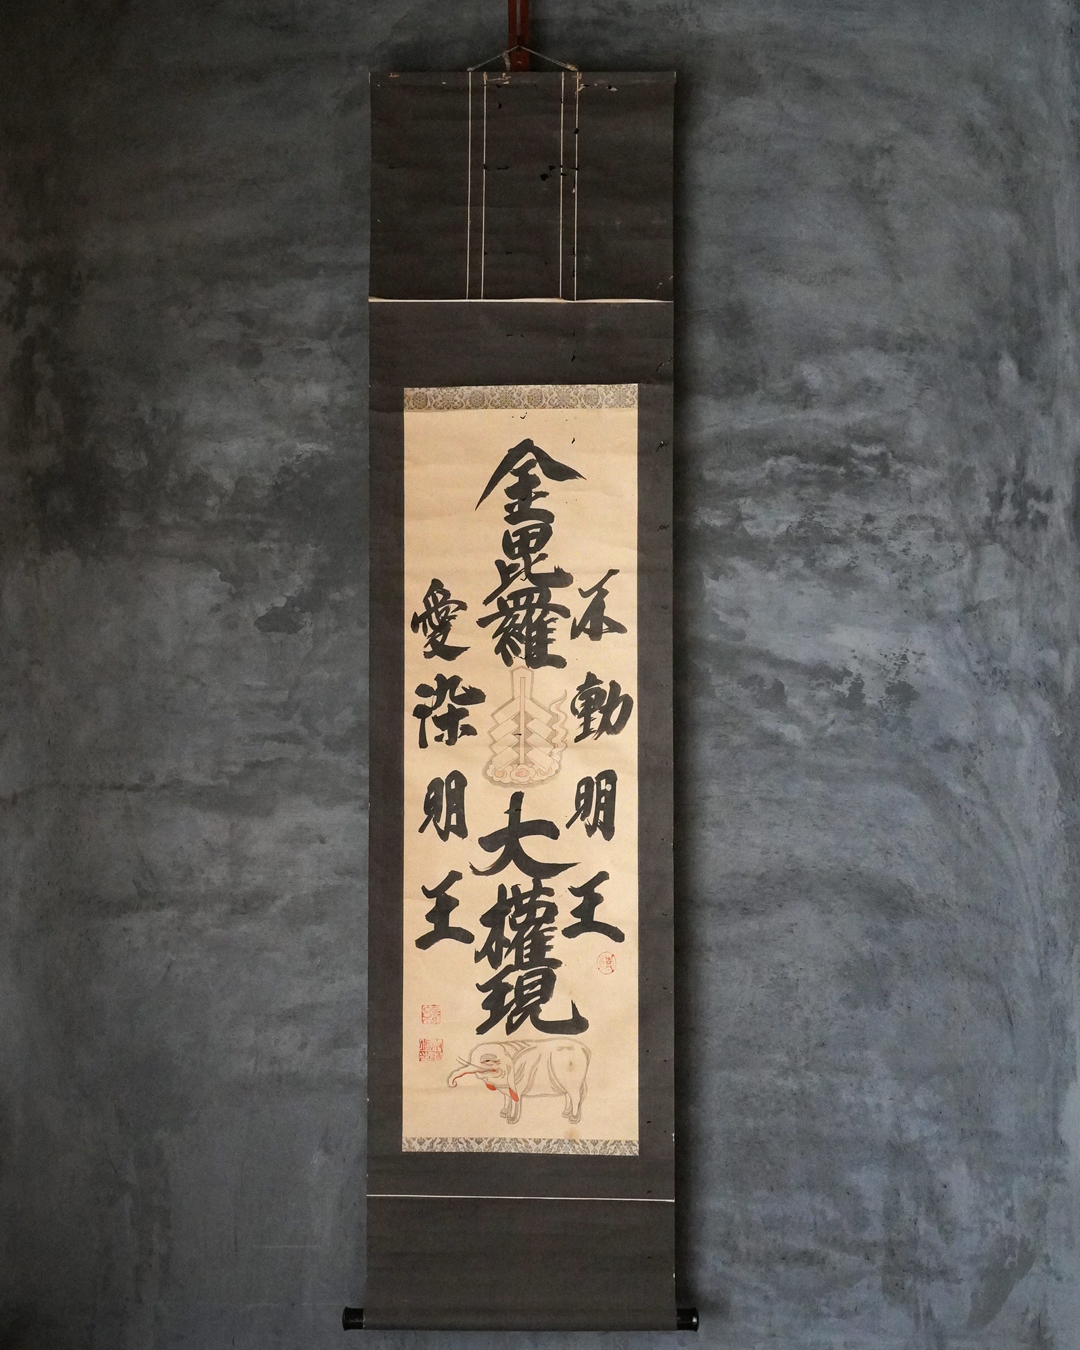 金毘羅大權現
不動明王
愛染明王